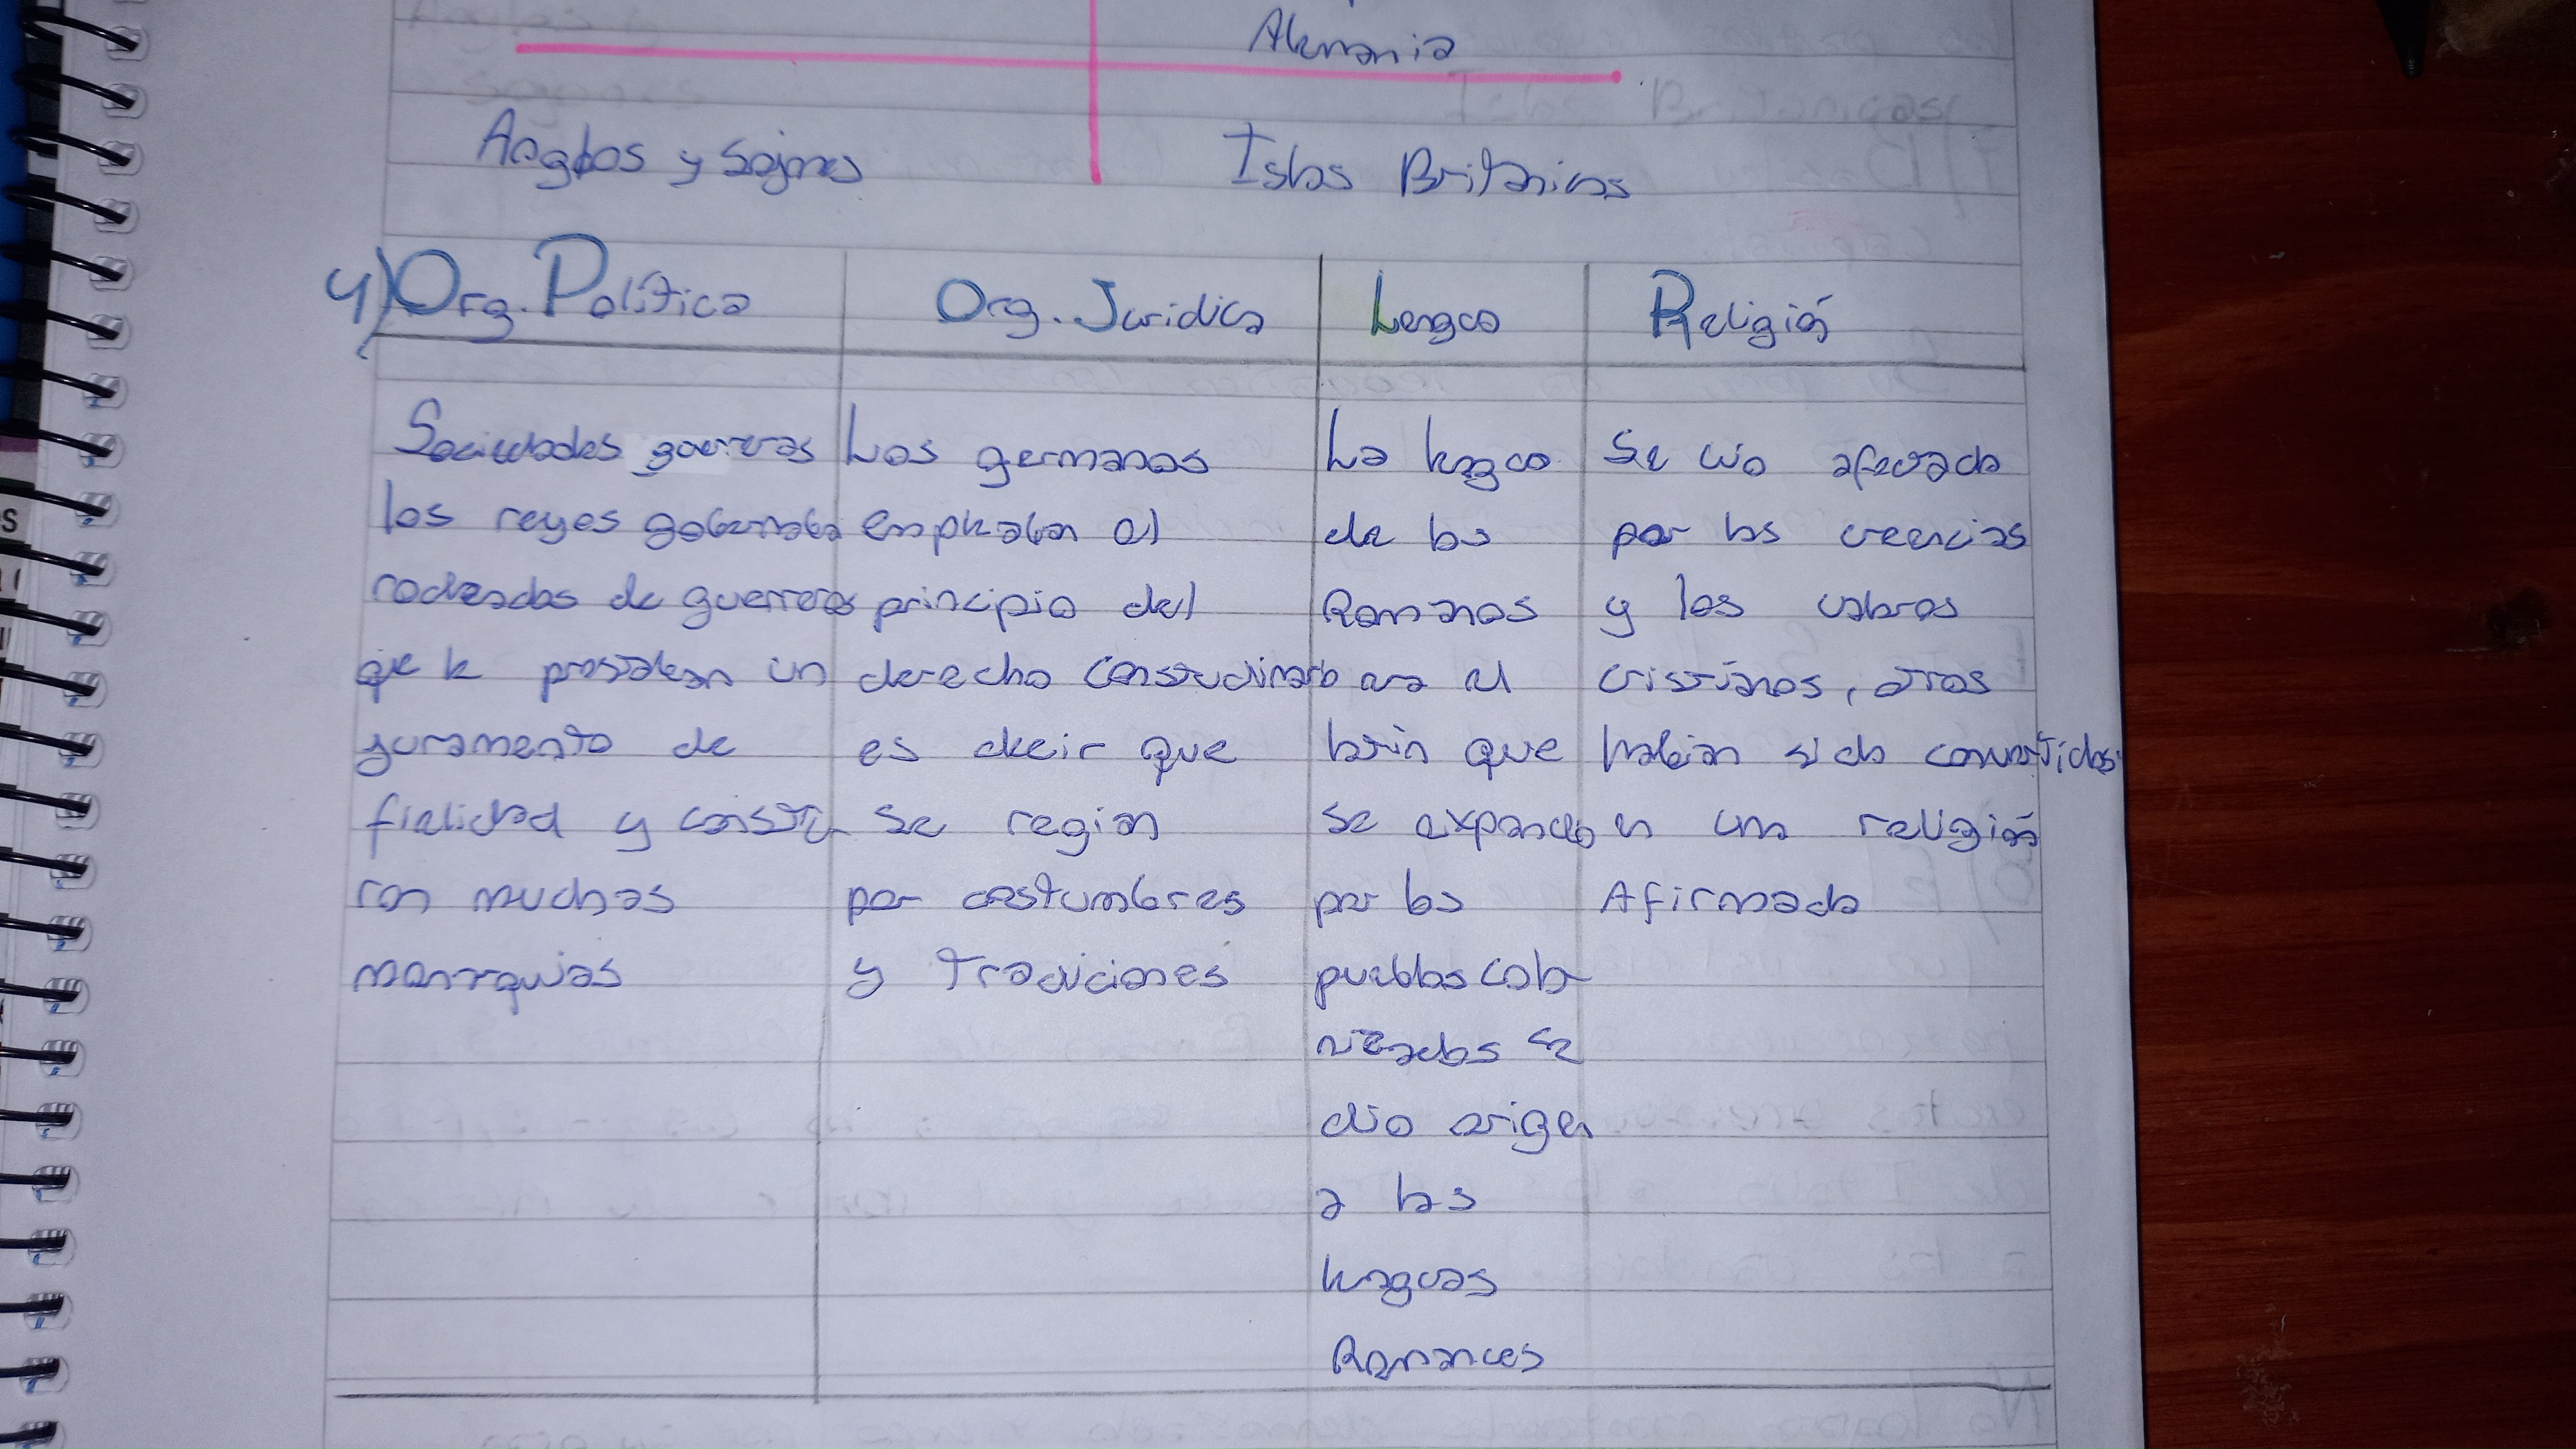 Alemania
Anglos y Sajones
Islas Britanicas
4) Org. Política
Org. Juridica
Lengua
Religión
Sociedades guerreras
los reyes gobernaba
rodeados de guerreros
que le prestaban un
juramento de
fielidad y constru
ron muchas
monarquias
Los germanos
empleaban el
principio del
derecho constudinario
es decir que
se regian
por costumbres
y Tradiciones
La lengua
de los
Romanos
era el
latin que
se expandio
por los
pueblos colo-
nizados se
dio origen
a las
lenguas
Romances
Se vio afectada
por las creencias
y los valores
cristianos, otros
habian sido convertidos
en una religión
Afirmada